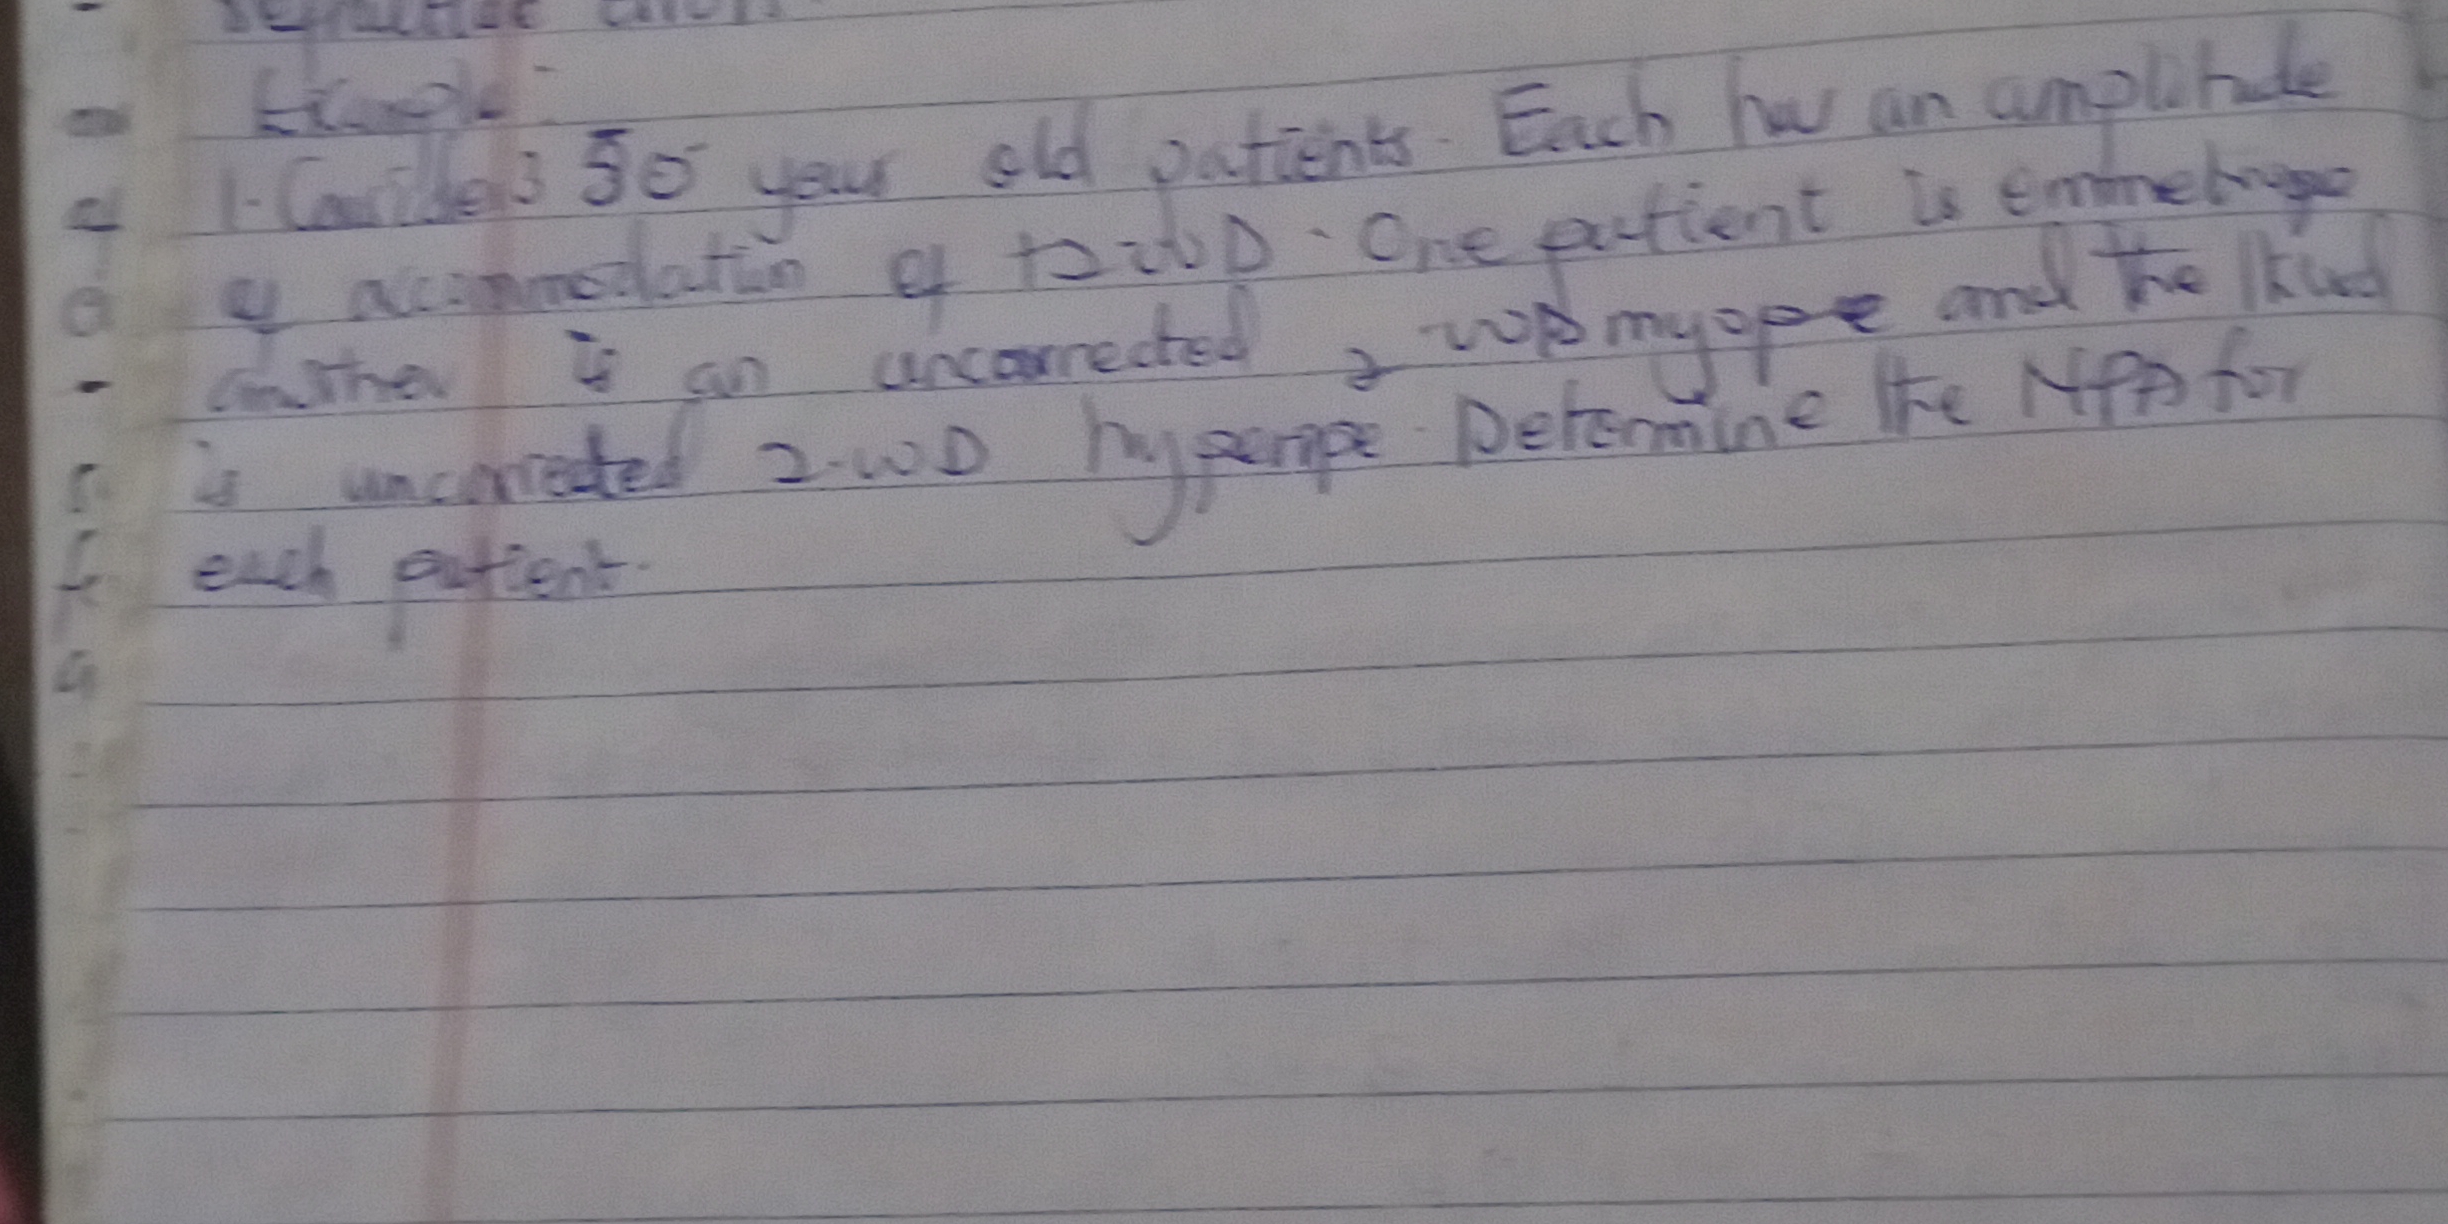 Example
1. Consider 3 50 years old patients. Each has an amplitude
of accommodation of +2.00D. One patient is emmetrope
another is an uncorrected 2.00D myope and the third
is uncorrected 2.00D hyperope. Determine the NPA for
each patient.